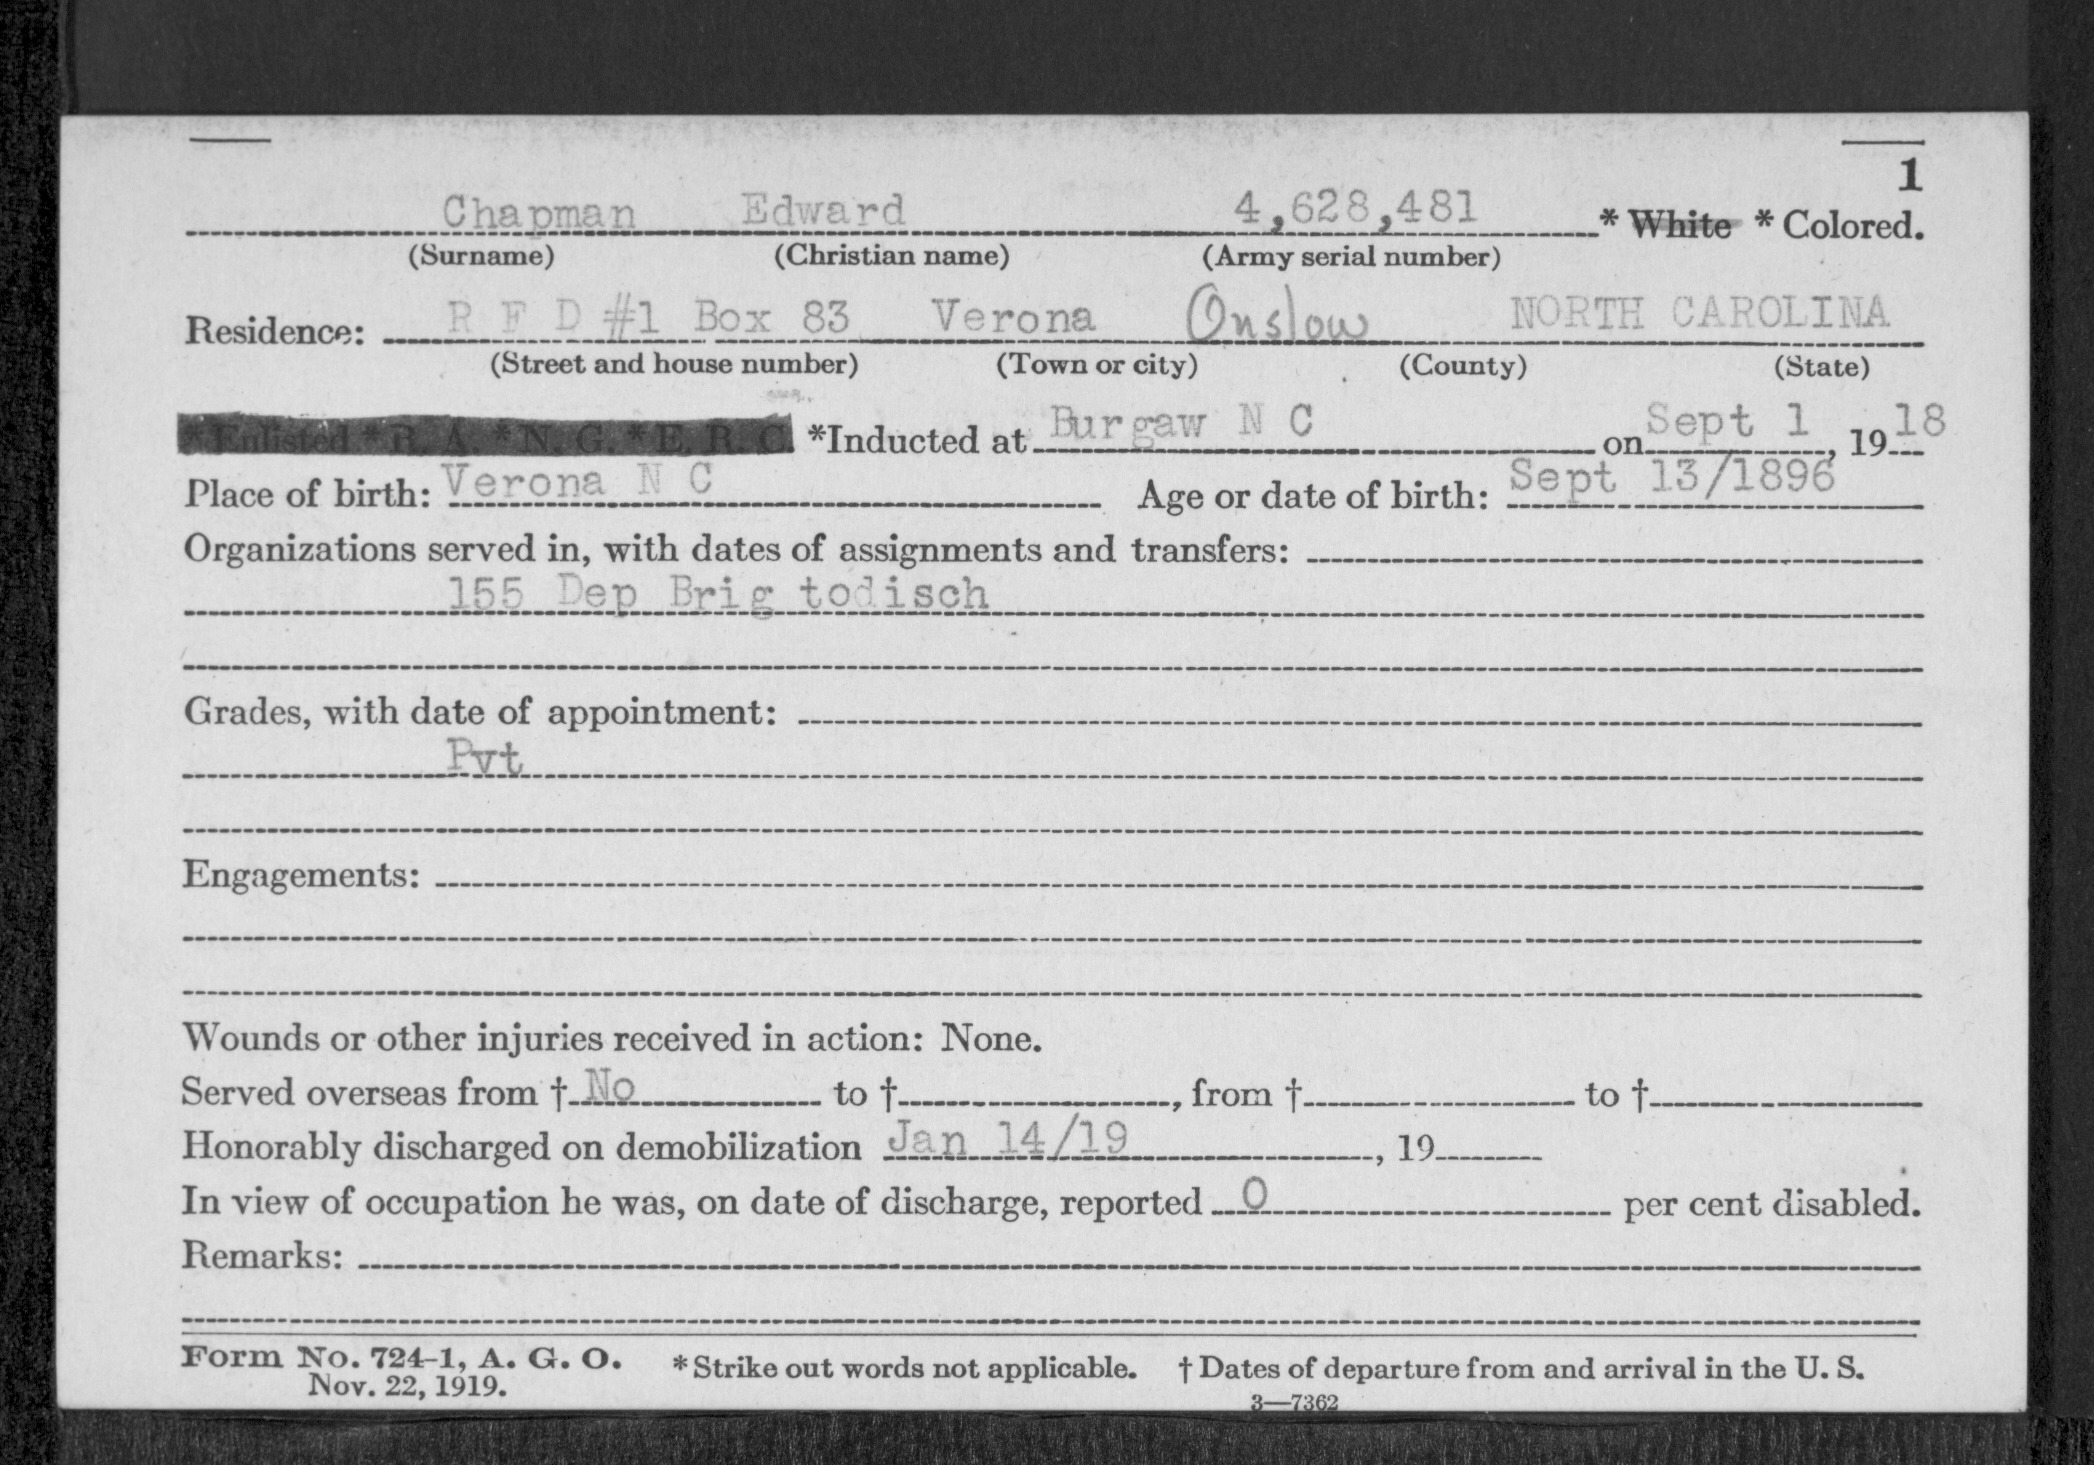 1
Chapman Edward 4,628,481 * White * Colored.
(Surname) (Christian name) (Army serial number)
Residence: R F D #1 Box 83 Verona Onslow NORTH CAROLINA
(Street and house number) (Town or city) (County) (State)
*Enlisted *R. A. *N. G. *E. R. C. *Inducted at Burgaw N C on Sept 1, 1918
Place of birth: Verona N C Age or date of birth: Sept 13/1896
Organizations served in, with dates of assignments and transfers:
155 Dep Brig todisch
Grades, with date of appointment:
Pvt
Engagements:
Wounds or other injuries received in action: None.
Served overseas from † No to †, from † to †
Honorably discharged on demobilization Jan 14/19, 19
In view of occupation he was, on date of discharge, reported 0 per cent disabled.
Remarks:
Form No. 724-1, A. G. O. * Strike out words not applicable. † Dates of departure from and arrival in the U. S.
Nov. 22, 1919.
3—7362